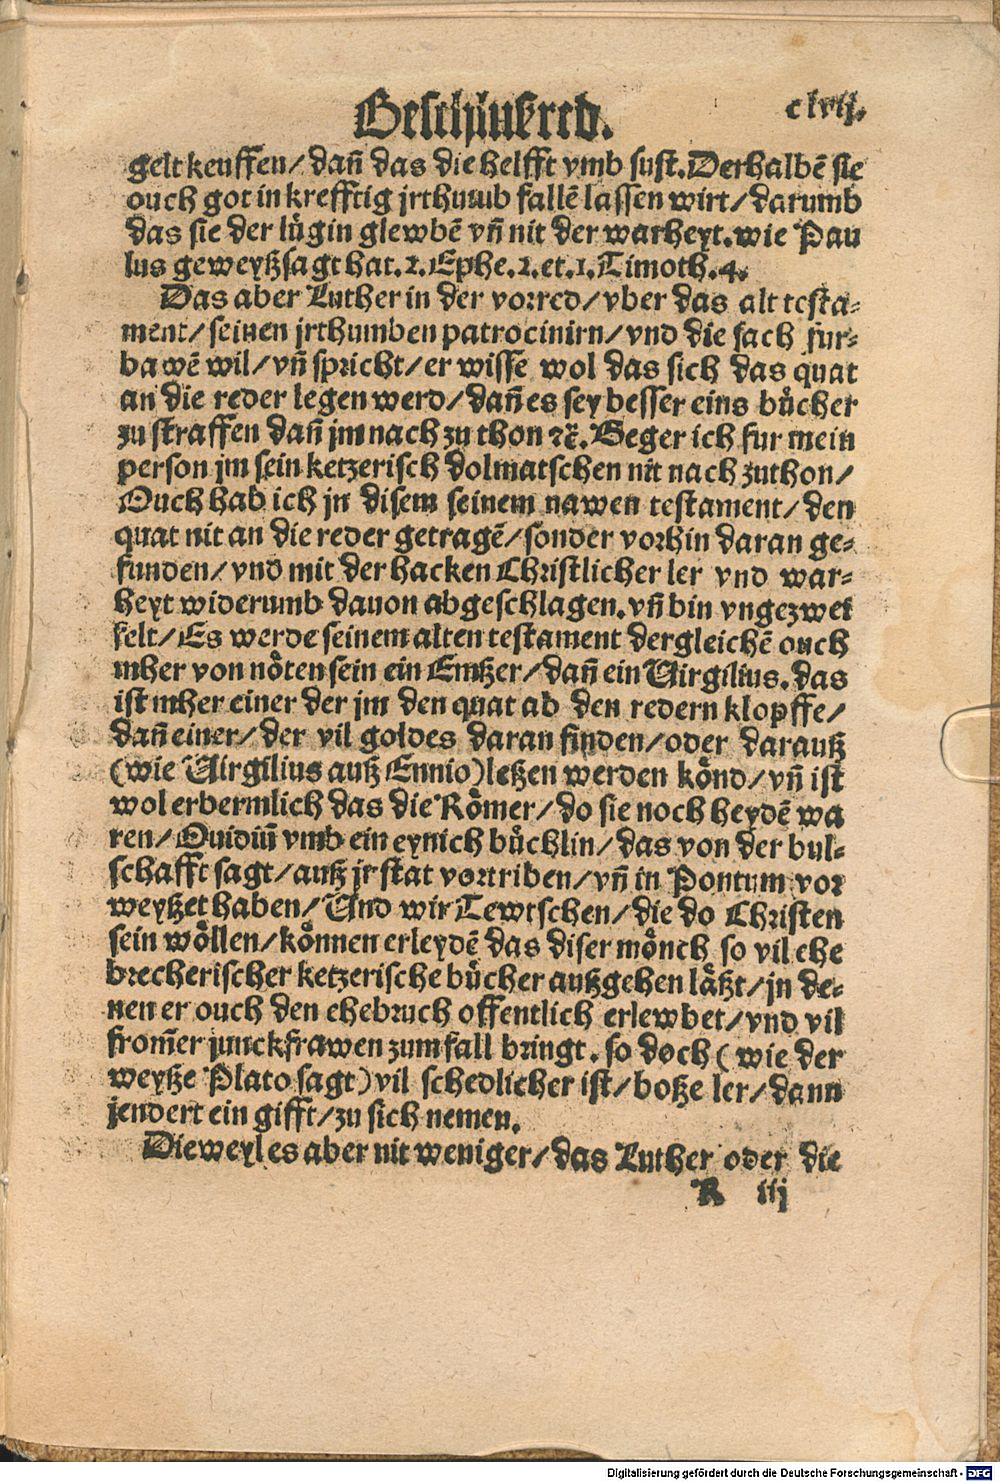 Beschlusred. clvij.
gelt keuffen/ dañ das die helfft vmb sust. Derhalbẽ sie
ouch got in krefftig jrthumb fallẽ lassen wirt/ darumb
das sie der lügin glewbẽ vñ nit der warheyt. wie Pau
lus geweyßsagt hat. 2. Ephe. 2. et. 1. Timoth. 4.
Das aber Luther in der vorred/ vber das alt testa-
ment/ seinen jrthumben patrocinirn/ vnd die sach fur-
bawẽ wil/ vñ spricht/ er wisse wol das sich das quat
an die reder legen werd/ dañ es sey besser eins bůcher
zu straffen dañ jm nach zu thon ⁊c̃. Beger ich fur mein
person jm sein ketzerisch dolmatschen nit nach zuthon/
Ouch hab ich jn disem seinem nawen testament/ den
quat nit an die reder getragẽ/ sonder vorhin daran ge-
funden/ vnd mit der hacken Christlicher ler vnd war-
heyt widerumb dauon abgeschlagen. vñ bin vngezwei
felt/ Es werde seinem alten testament dergleichẽ ouch
mher von nöten sein ein Emßer/ dañ ein Virgilius. das
ist mher einer der jm den quat ab den redern klopffe/
dañ einer/ der vil goldes daran finden/ oder darauß
(wie Virgilius auß Ennio) leßen werden könd/ vñ ist
wol erbermlich das die Römer/ do sie noch heydẽ wa
ren/ Ouidiũ vmb ein eynich bůchlin/ das von der bul-
schafft sagt/ auß jr stat vortriben/ vñ in Pontum vor
weyßet haben/ Vnd wir Tewtschen/ die do Christen
sein wöllen/ können erleydẽ das diser mönch so vil ehe
brecherischer ketzerische bůcher außgehen läßt/ jn de-
nen er ouch den ehebruch offentlich erlewbet/ vnd vil
from̃er junckfrawen zum fall bringt. so doch ( wie der
weyße Plato sagt) vil schedlicher ist/ boße ler/ dann
jendert ein gifft/ zu sich nemen.
Dieweyl es aber nit weniger/ das Luther oder die
R iij
Digitalisierung gefördert durch die Deutsche Forschungsgemeinschaft - DFG